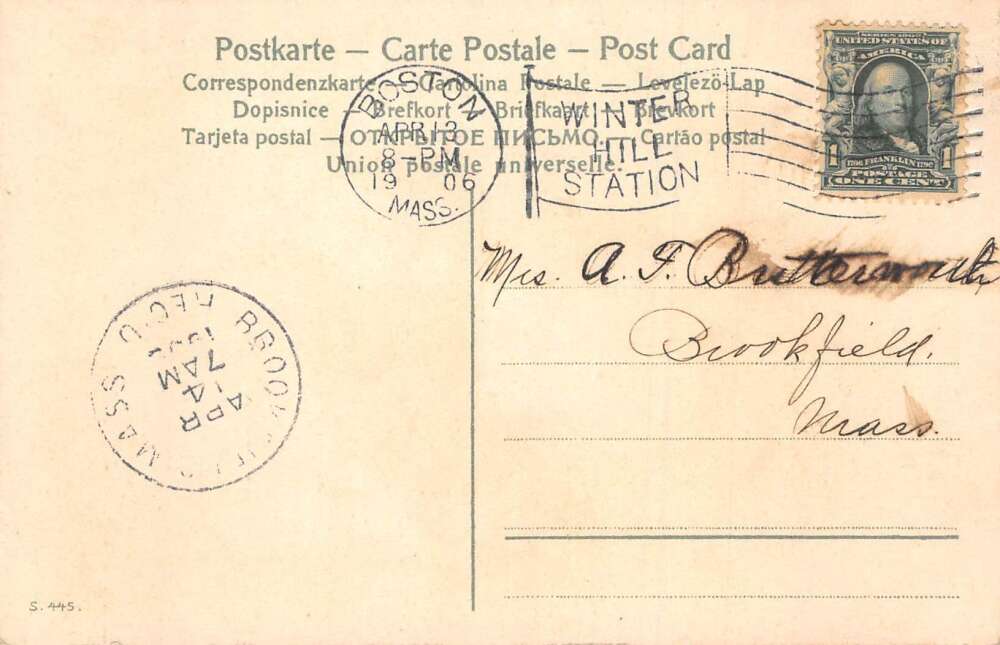 Postkarte — Carte Postale — Post Card
Correspondenzkarte — Cartolina Postale — Levelező-Lap
Dopisnice — Brefkort — Briefkaart — Brevkort
Tarjeta postal — ОТКРЫТОЕ ПИСЬМО — Cartão postal
Union postale universelle.
BOSTON
APR 13
8-PM
19 06
MASS.
WINTER
HILL
STATION
SERIES 1902
UNITED STATES OF
AMERICA
1 1706 FRANKLIN 1790 1
POSTAGE
ONE CENT
Mrs. A. F. Butterworth
Brookfield,
Mass.
BROOKFIELD MASS
APR
14
7 AM
REC'D
S. 445.